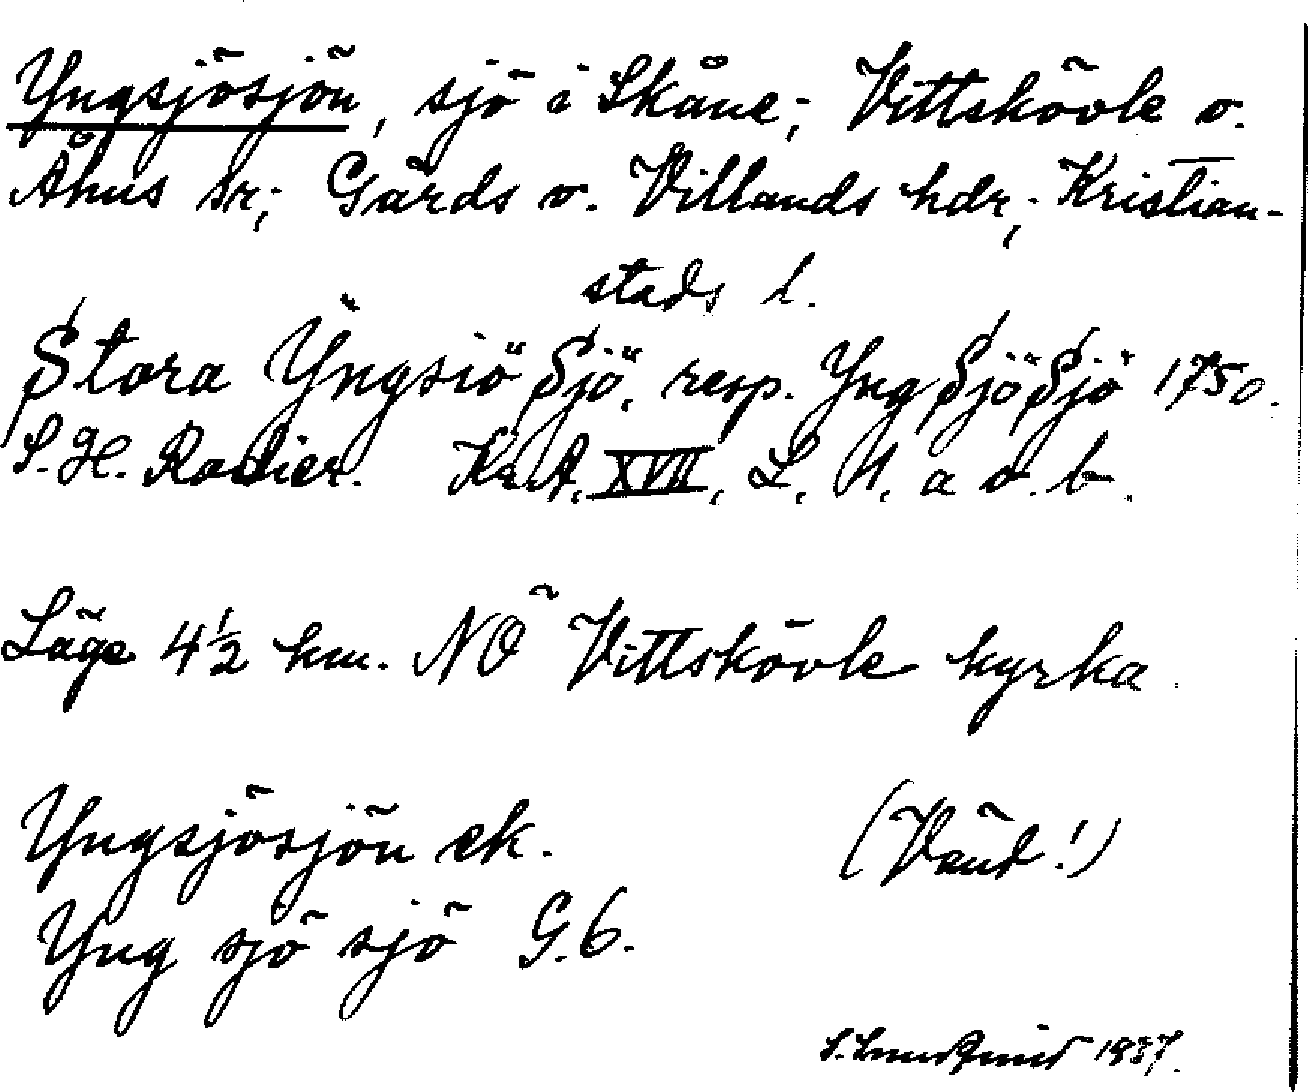 Yngsjösjön, sjö i Skåne; Vittskövle o.
Åhus sr; Gärds o. Villands hdr; Kristian-
stads l.
Stora Yngsiö Sjö, resp. Yng SjöSjö 1750.
S. H. Radier. XVII, L. U. a o. b.
Läge 4½ km. NÖ Vittskövle kyrka.
Yngsjösjön ek. (Vänd!)
Yng sjö sjö G.6.
1937.